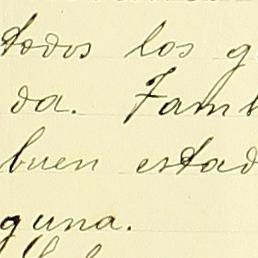 todos los g
da. Tamb
buen estad
guna.